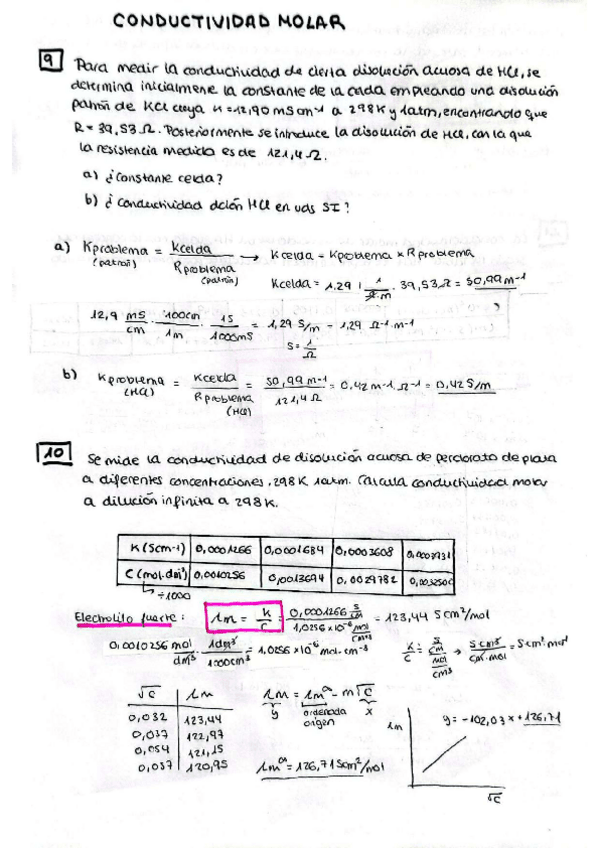 CONDUCTIVIDAD MOLAR
9 Para medir la conductividad de cierta disolución acuosa de HCl, se
determina inicialmene la constante de la celda empleando una disolución
patrón de KCl cuya K=12,90 mS cm-1 a 298K y 1atm, encontrando que
R= 39,53 Ω. Posteriormente se introduce la disolución de HCl, con la que
la resistencia medida es de 121,4 Ω.
a) ¿Constante celda?
b) ¿Conductividad dción HCl en uds SI?
a) Kproblema = Kcelda / Rproblema → Kcelda = Kproblema x Rproblema
(patrón) (patrón)
Kcelda = 1.29 1/Ω.m . 39,53 Ω = 50,99 m-1
12,9 mS/cm . 100cm/1m . 1S/1000mS = 1,29 S/m = 1,29 Ω-1.m-1
S = 1/Ω
b) Kproblema = Kcelda / Rproblema = 50,99 m-1 / 121,4 Ω = 0,42 m-1.Ω-1 = 0,42 S/m
(HCl) (HCl)
10 Se mide la conductividad de disolución acuosa de perclorato de plata
a diferentes concentraciones, 298K 1atm. Calcula conductividad molar
a dilución infinita a 298K.
K (S cm-1) 0,0001266 0,0001684 0,0003608
C (mol.dm3) 0,0010256 0,0013694 0,0029782
÷1000
Electrolito fuerte: Λm = K/C = 0,0001266 S/cm / 1,0256 x10-6 mol/cm3 = 123,44 S cm2/mol
0,0010256 mol/dm3 . 1dm3/1000cm3 = 1,0256 x10-6 mol.cm-3
K/C = S/cm / mol/cm3 → S cm3/cm.mol = S cm2 mol-1
√C Λm Λm = Λm∞ - m√C
y ordenada origen x
0,032 123,44
0,037 122,97
0,054 121,15
0,057 120,95
Λm∞ = 126,71 S cm2/mol
Λm
y = -102,03 x + 126,71
√C